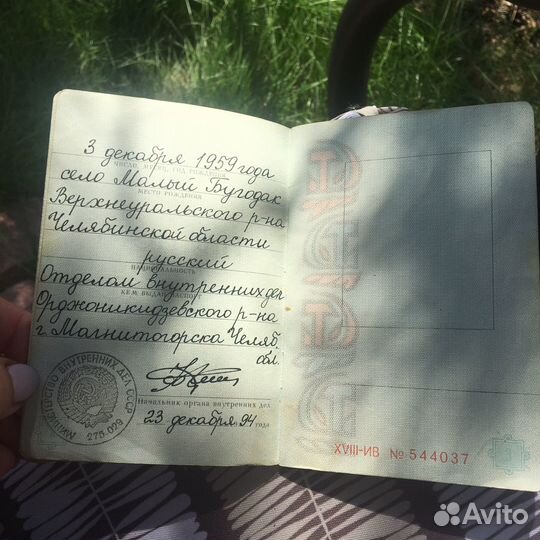 3 декабря 1959 года
ЧИСЛО, МЕСЯЦ, ГОД РОЖДЕНИЯ
село Малый Бугодак
МЕСТО РОЖДЕНИЯ
Верхнеуральского р-на
Челябинской области
русский
НАЦИОНАЛЬНОСТЬ
Отделом внутренних дел
КЕМ ВЫДАН ПАСПОРТ
Орджоникидзевского р-на
г. Магнитогорска Челяб.
обл.
МИНИСТЕРСТВО ВНУТРЕННИХ ДЕЛ СССР
275-029
Начальник органа внутренних дел
23 декабря 94 года
XVIII-ИВ № 544037
Avito